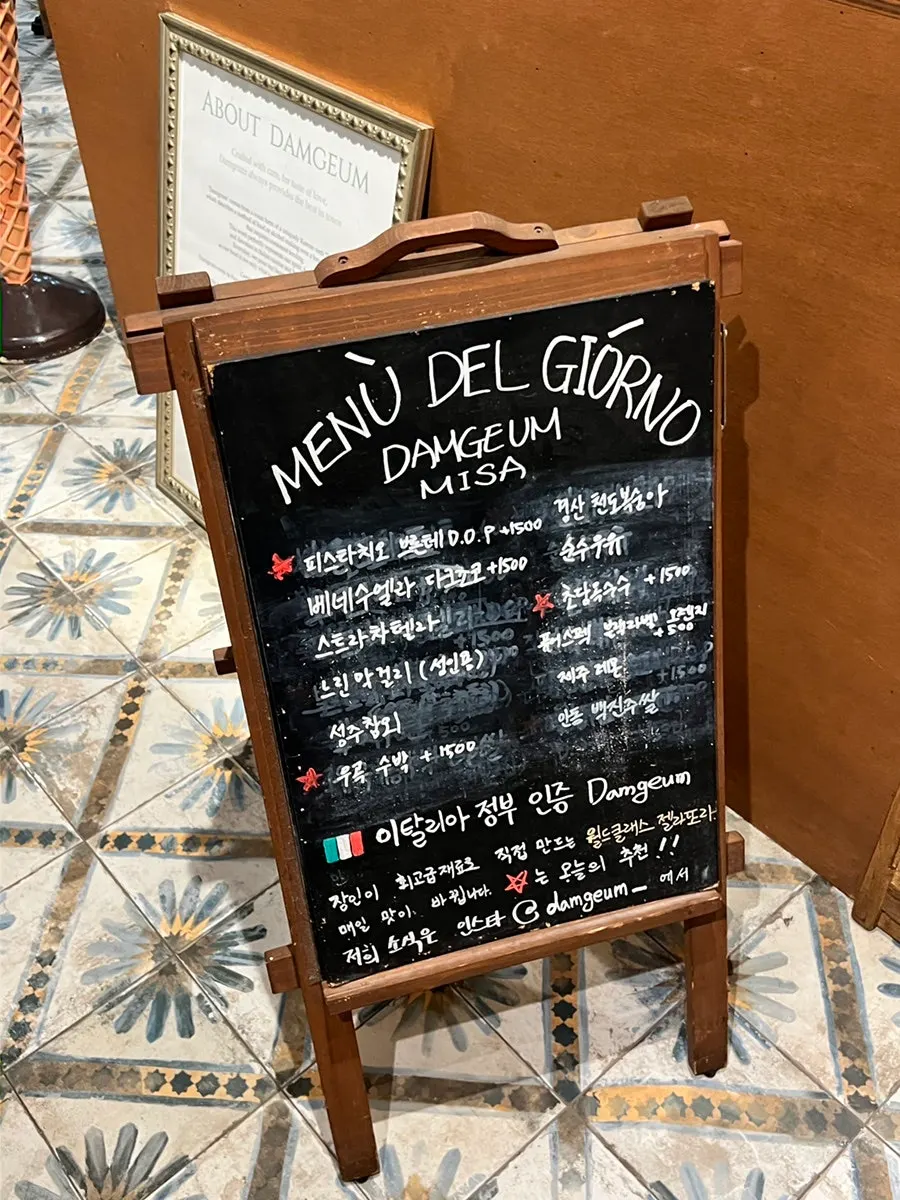 ABOUT DAMGEUM
Crafted with care, for taste of love,
Damgeum always provides the best in town
MENÙ DEL GIÓRNO
DAMGEUM
MISA
피스타치오 브론테 D.O.P +1500
베네수엘라 다크쵸코 +1500
스트라챠텔라
느린막걸리 (성인용)
성주참외
우곡 수박 +1500
경산 천도복숭아
순수우유
초당옥수수 +1500
퓨어스펙 블랙라벨 오렌지 +500
제주 레몬
안동 백진주쌀
이탈리아 정부 인증 Damgeum
장인이 최고급재료로 직접 만드는 월드클래스 젤라또라
매일 맛이 바뀝니다. ☆는 오늘의 추천!!
저희 소식은 인스타 @damgeum_ 에서